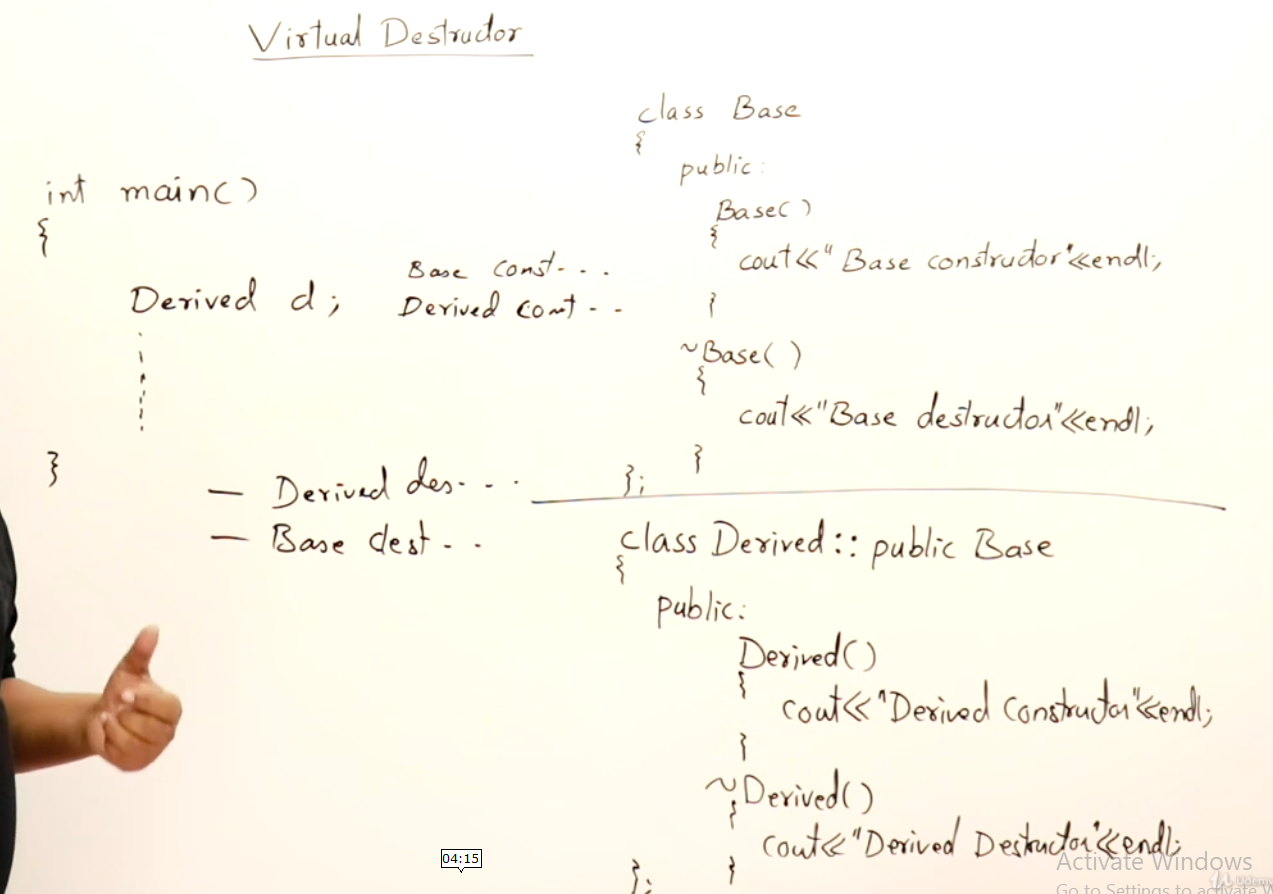 Virtual Destructor
int main()
{
Derived d;
Base const...
Derived const..
}
— Derived des...
— Base dest..
class Base
{
public:
Base()
{
cout<<"Base constructor"<<endl;
}
~Base()
{
cout<<"Base destructor"<<endl;
}
};
class Derived :: public Base
{
public:
Derived()
{
cout<<"Derived Constructor"<<endl;
}
~Derived()
{
cout<<"Derived Destructor"<<endl;
}
};
04:15
Activate Windows
Go to Settings to activate W
Udemy